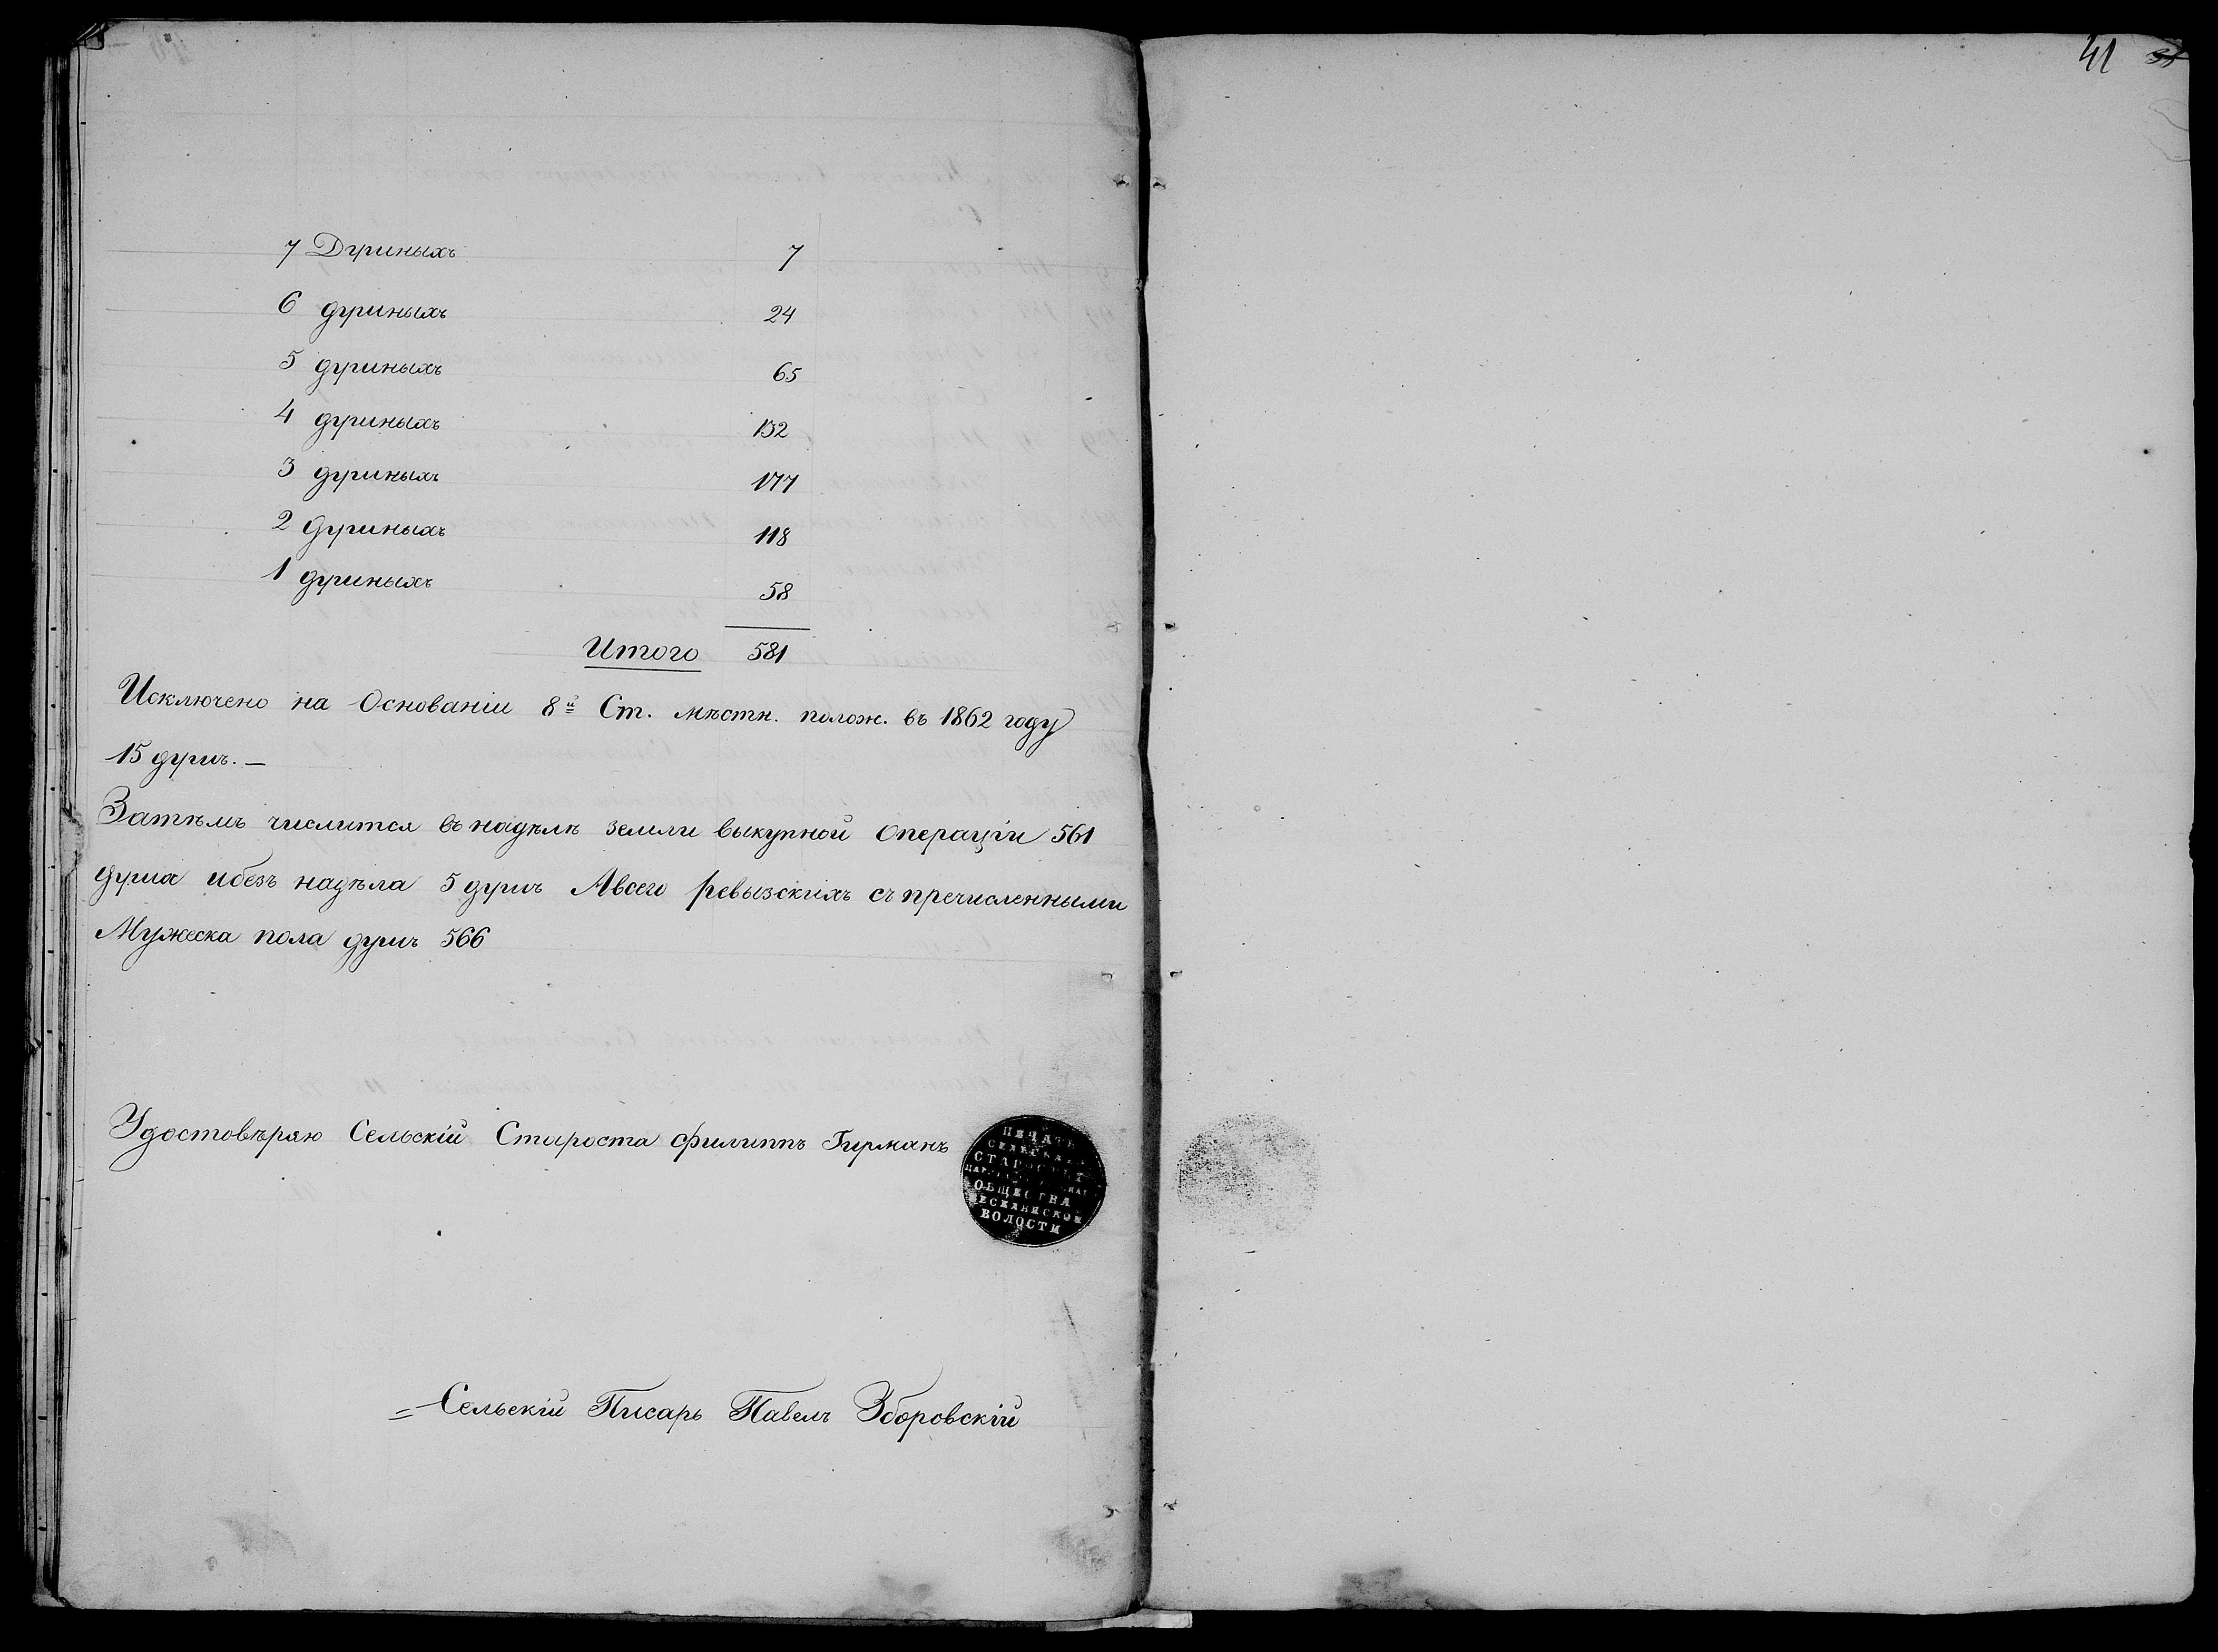 41 31
7 Душныхъ 7
6 душныхъ 24
5 душныхъ 65
4 душныхъ 132
3 душныхъ 177
2 душныхъ 118
1 душныхъ 58
Итого 581
Исключено на Основаніи 8й Ст. мѣстн. полож. въ 1862 году
15 душъ. —
Затѣмъ числится въ надѣлѣ земли выкупной операціи 561
душа ибезъ надѣла 5 душъ Авсего ревызскихъ съ пречисленными
Мужеска пола душъ 566
Удостовѣряю Сельскій Староста Филиппъ Гирманъ
ПЕЧАТЬ
СЕЛЬСКАГО
СТАРОСТЫ
ОБЩЕСТВА
ВОЛОСТИ
= Сельскій Писарь Павелъ Зборовскій